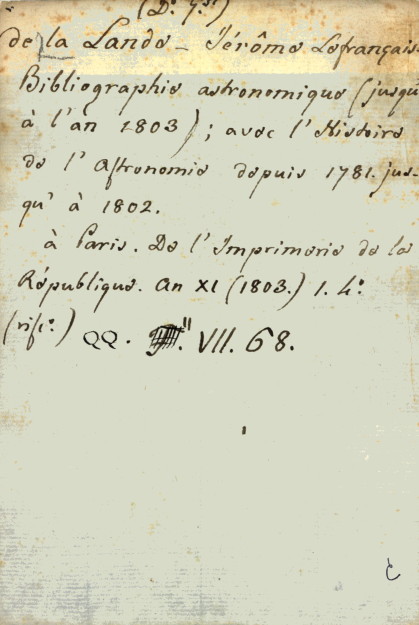 (D.º 7.bre)
de la Lande _ Jérôme Lefrançais.
Bibliographie astronomique (jusqu'
à l'an 1803); avec l'Histoire
de l'Astronomie depuis 1781. jus-
qu'à 1802.
à Paris. De l'Imprimerie de la
République. an XI (1803.) 1. 4.º
(rifc.º) QQ. VII. 68.